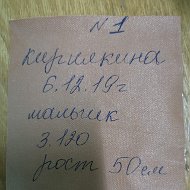 №1
Кирилкина
6.12.19г
мальчик
3.120
рост 50см